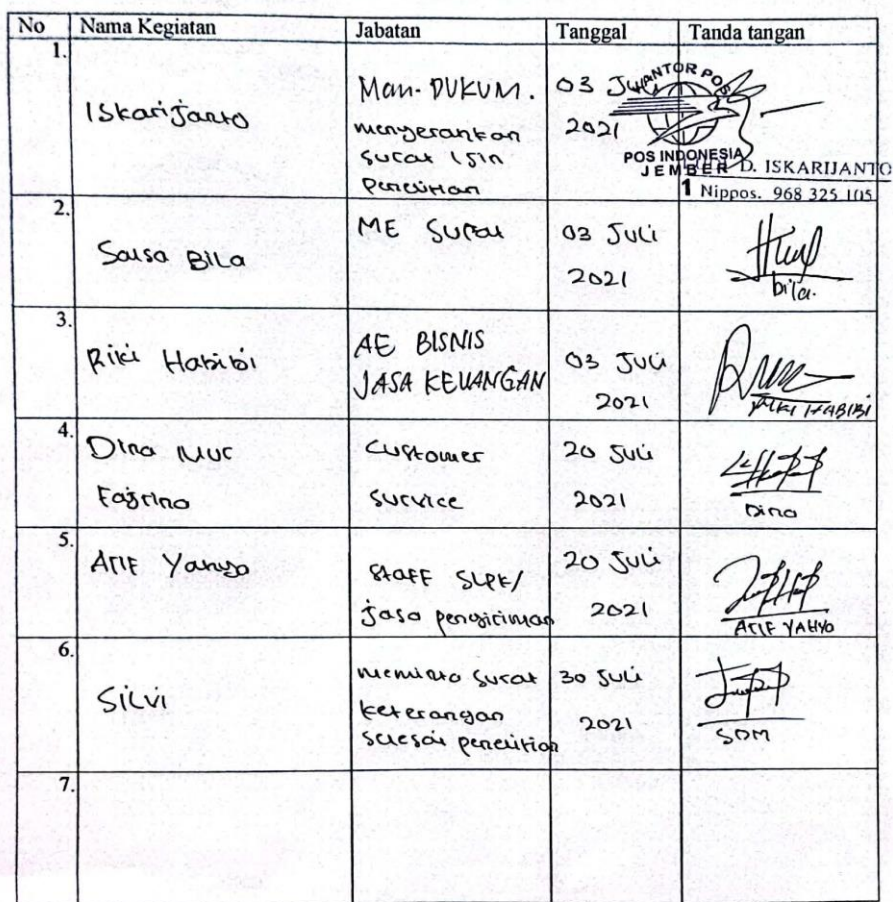 No Nama Kegiatan Jabatan Tanggal Tanda tangan
1.
Iskarijanto
Man. DUKUM.
menyerahkan
surat Ijin
penelitian
03 Juli
2021
KANTOR POS
POS INDONESIA
JEMBER
1
D. ISKARIJANTO
Nippos. 968 325 105
2.
Salsa Bila
ME Surat
03 Juli
2021
bila.
3.
Riki Habibi
AE BISNIS
JASA KEUANGAN
03 Juli
2021
RIKI HABIBI
4.
Dina Nur
Fajrina
Customer
Survice
20 Juli
2021
Dina
5.
Atif Yahya
Staff SLPK/
jasa pengiriman
20 Juli
2021
ATIF YAHYA
6.
Silvi
meminta surat
keterangan
selesai penelitian
30 Juli
2021
SDM
7.